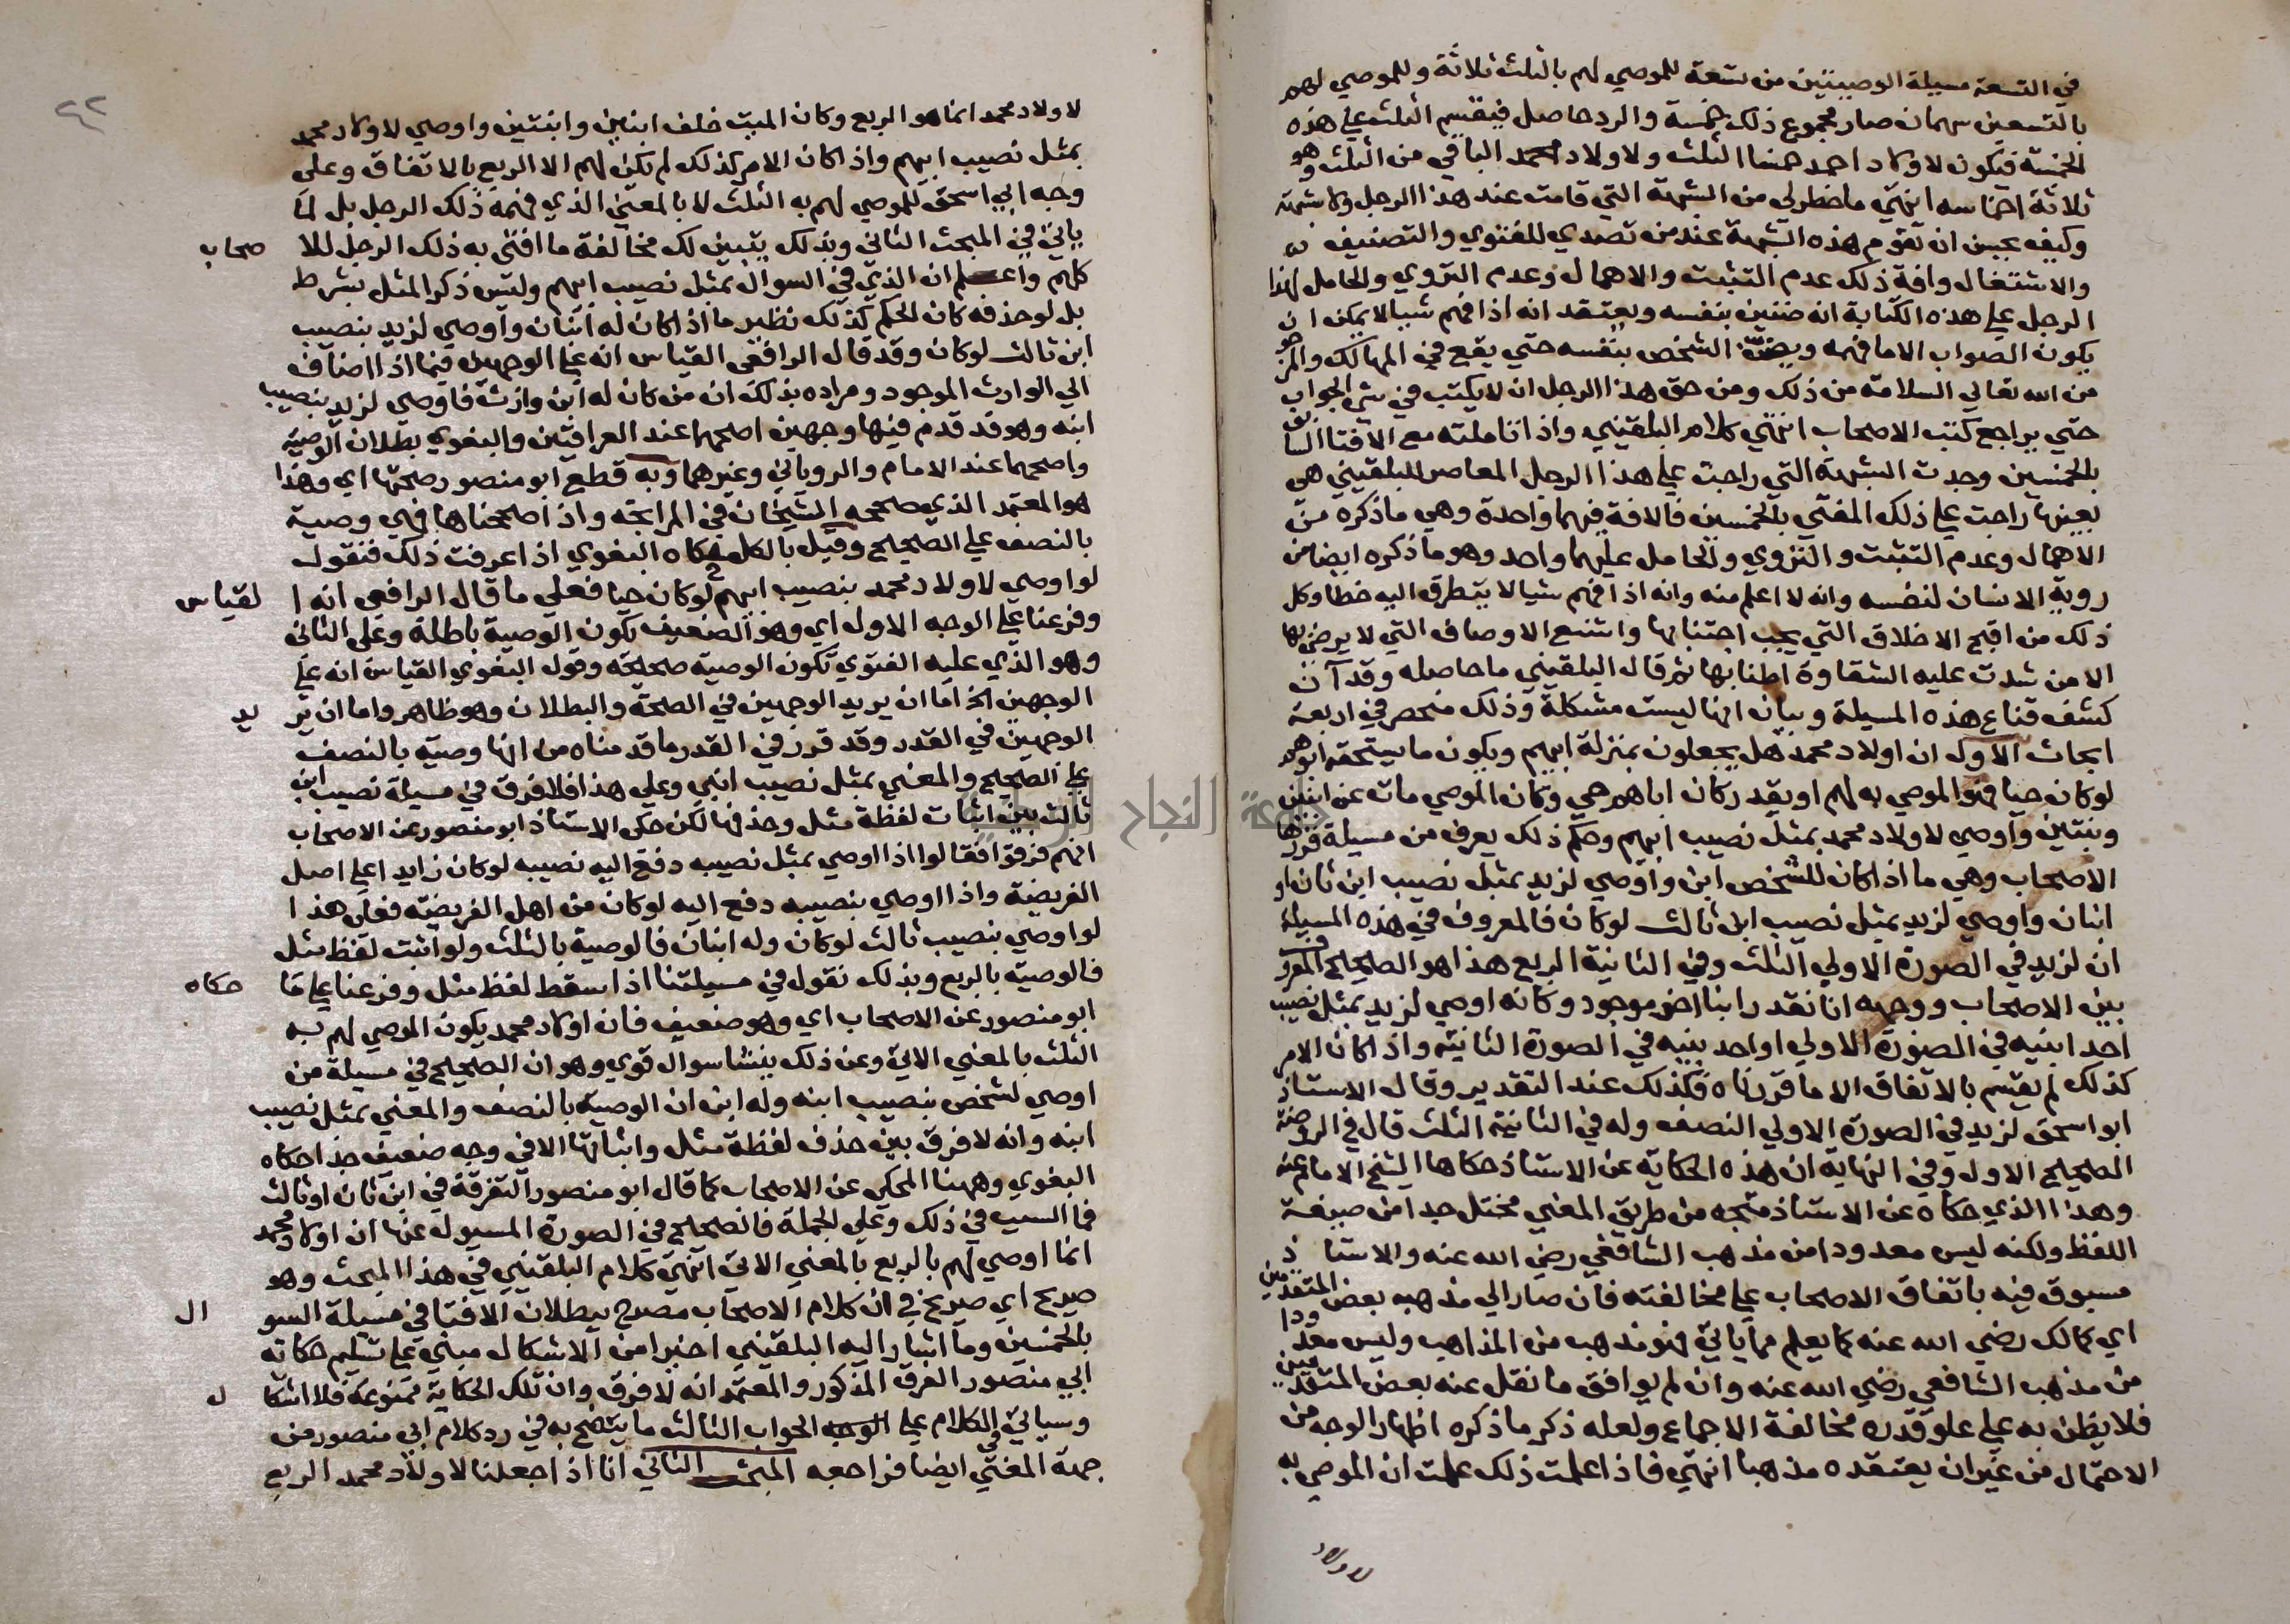 في التسعة مسيلة الوصيتين من تسعة للموصي لهم بالثلث ثلاثة وللموصي لهم
بالتسعين سهمان صار مجموع ذلك خمسة والرد حاصل فيقسم الثلث علي هذه
الخمسة فيكون لاولاد احمد خمسا الثلث ولاولاد محمد الباقي من الثلث وهو
ثلاثة اخماسه انتهي ما خطر لي من الشبهة التي قامت عند هذا الرجل ولا شبهة
وكيف يحسن ان تقوم هذه الشبهة عند من تصدي للفتوي والتصنيف
والاشتغال وافة ذلك عدم التثبت والاهمال وعدم التروي والحامل لهذا
الرجل علي هذه الكتابة انه ضنين بنفسه ويعتقد انه اذا فهم شيا لا يمكن ان
يكون الصواب الا ما فهمه ويضن الشخص بنفسه حتي يقع في المهالك والمرجو
من الله تعالي السلامة من ذلك ومن حق هذا الرجل ان لا يكتب في شي الجواب
حتي يراجع كتب الاصحاب انتهي كلام البلقيني واذا تاملته مع الافتا السابق
بالخمسين وجدت الشبهة التي راجت علي هذا الرجل المعاصر للبلقيني هي
بعينها راجت علي ذلك المفتي بالخمسين فالافة فيهما واحدة وهي ما ذكره من
الاهمال وعدم التثبت والتروي والحامل عليهما واحد وهو ما ذكره ايضا من
روية الانسان لنفسه وانه لا اعلم منه وانه اذا فهم شيا لا يتطرق اليه خطا وكل
ذلك من اقبح الاخلاق التي يجب اجتنابها واشنع الاوصاف التي لا يرضي بها
الا من شدت عليه الشقاوة اطنابها ثم قال البلقيني ما حاصله وقد آن
كشف قناع هذه المسيلة وبيان انها ليست مشكلة وذلك منحصر في اربعة
ابحاث الاول ان اولاد محمد هل يجعلون بمنزلة ابيهم ويكون ما يستحقه ابوهم
لو كان حيا فهو الموصي به لهم او يقدر كان اباهم حي وكان الموصي مات عن ابنين
وبنتين واوصي لاولاد محمد بمثل نصيب ابيهم وحكم ذلك يعرف من مسيلة قررها
الاصحاب وهي ما اذا كان للشخص ابن واوصي لزيد بمثل نصيب ابن ثان او
ابنان واوصي لزيد بمثل نصيب ابن ثالث لو كان فالمعروف في هذه المسيلة
ان لزيد في الصورة الاولي الثلث وفي الثانية الربع هذا هو الصحيح المعروف
بين الاصحاب ووجهه انا نقدر ابنا اخر موجود وكانه اوصي لزيد بمثل نصيب
احد ابنيه في الصورة الاولي او احد بنيه في الصورة الثانية واذا كان الامر
كذلك لم يقسم بالاتفاق الا ما قررناه فكذلك عند التقدير وقال الاستاذ
ابو اسحق لزيد في الصورة الاولي النصف وله في الثانية الثلث قال في الروضة
الصحيح الاول وفي النهاية ان هذه الحكاية عن الاستاذ حكاها الشيخ الامام عنه
وهذا الذي حكاه عن الاستاذ متجه من طريق المعني مختل جدا من صيغة
اللفظ ولكنه ليس معدودا من مذهب الشافعي رضي الله عنه والاستاذ
مسبوق فيه باتفاق الاصحاب علي مخالفته فان صار الي مذهبه بعض المتقدمين
اي كمالك رضي الله عنه كما يعلم مما ياتي فهو مذهب من المذاهب وليس معدودا
من مذهب الشافعي رضي الله عنه وان لم يوافق ما نقل عنه بعض المتقدمين
فلا يظن به علي علو قدره مخالفة الاجماع ولعله ذكر ما ذكره اظهار الوجه من
الاحتمال من غير ان يعتقده مذهبا انتهي فاذا علمت ذلك علمت ان الموصي به
لاولاد
٤٢
لاولاد محمد انما هو الربع وكان الميت خلف ابنين وابنتين واوصي لاولاد محمد
بمثل نصيب ابيهم واذا كان الامر كذلك لم يكن لهم الا الربع بالاتفاق وعلي
وجه ابي اسحق للموصي لهم به الثلث لا بالمعني الذي فهمه ذلك الرجل بل لما
ياتي في المبحث الثاني وبذلك يتبين لك مخالفة ما افتي به ذلك الرجل للاصحاب
كلهم واعلم ان الذي في السوال بمثل نصيب ابيهم وليس ذكر المثل بشرط
بل لو حذفه كان الحكم كذلك نظير ما اذا كان له ابنان واوصي لزيد بنصيب
ابن ثالث لو كان وقد قال الرافعي القياس انه علي الوجهين فيما اذا اضاف
الي الوارث الموجود ومراده بذلك ان من كان له ابن وارث فاوصي لزيد بنصيب
ابنه وهو قد قدم فيها وجهين اصحهما عند العراقيين والبغوي بطلان الوصية
واصحهما عند الامام والروياني وغيرهما وبه قطع ابو منصور صحتها اي وهذا
هو المعتمد الذي صححه الشيخان في المرابحة واذا صححناها فهي وصية
بالنصف علي الصحيح وقيل بالكل حكاه البغوي اذا عرفت ذلك فنقول
لو اوصي لاولاد محمد بنصيب ابيهم لو كان حيا فعلي ما قال الرافعي انه القياس
وفرعنا علي الوجه الاول اي وهو الضعيف يكون الوصية باطلة وعلي الثاني
وهو الذي عليه الفتوي تكون الوصية صحيحة وقول البغوي القياس انه علي
الوجهين الخ اما ان يريد الوجهين في الصحة والبطلان وهو ظاهر واما ان يريد
الوجهين في القدر وقد قرر في القدر ما قدمناه من انها وصية بالنصف
علي الصحيح والمعني بمثل نصيب ابني وعلي هذا فلا فرق في مسيلة نصيب ابن
ثالث بين اثبات لفظة مثل وحذفها لكن حكي الاستاذ ابو منصور عن الاصحاب
انهم فرقوا فقالوا اذا اوصي بمثل نصيبه دفع اليه نصيبه لو كان زايدا علي اصل
الفريضة واذا اوصي بنصيبه دفع اليه لو كان من اهل الفريضة فعلي هذا
لو اوصي بنصيب ثالث لو كان وله ابنان فالوصية بالثلث ولو اثبت لفظ مثل
فالوصية بالربع وبذلك نقول في مسيلتنا اذا سقط لفظ مثل وفرعنا علي ما حكاه
ابو منصور عن الاصحاب اي وهو ضعيف فان اولاد محمد يكون الموصي لهم به
الثلث بالمعني الاتي وعن ذلك ينشا سوال قوي وهو ان الصحيح في مسيلة من
اوصي لشخص بنصيب ابنه وله ابن ان الوصية بالنصف والمعني بمثل نصيب
ابنه وانه لا فرق بين حذف لفظة مثل واثباتها الا في وجه ضعيف جدا حكاه
البغوي وههنا المحكي عن الاصحاب كما قال ابو منصور التفرقة في ابن ثان او ثالث
فما السبب في ذلك وعلي الجملة فالصحيح في الصورة المسيول عنها ان اولاد محمد
انما اوصي لهم بالربع بالمعني الاتي انتهي كلام البلقيني في هذا المبحث وهو
صريح اي صريح في ان كلام الاصحاب مصرح ببطلان الافتا في مسيلة السوال
بالخمسين وما اشار اليه البلقيني اخيرا من الاشكال مبني علي تسليم حكاية
ابي منصور الفرق المذكور والمعتمد انه لا فرق وان تلك الحكاية ممنوعة فلا اشكال
وسياتي في الكلام علي الجواب الثالث ما يتضح به في رد كلام ابي منصور من
جهة المعني ايضا فراجعه المبحث الثاني انا اذا جعلنا لاولاد محمد الربع